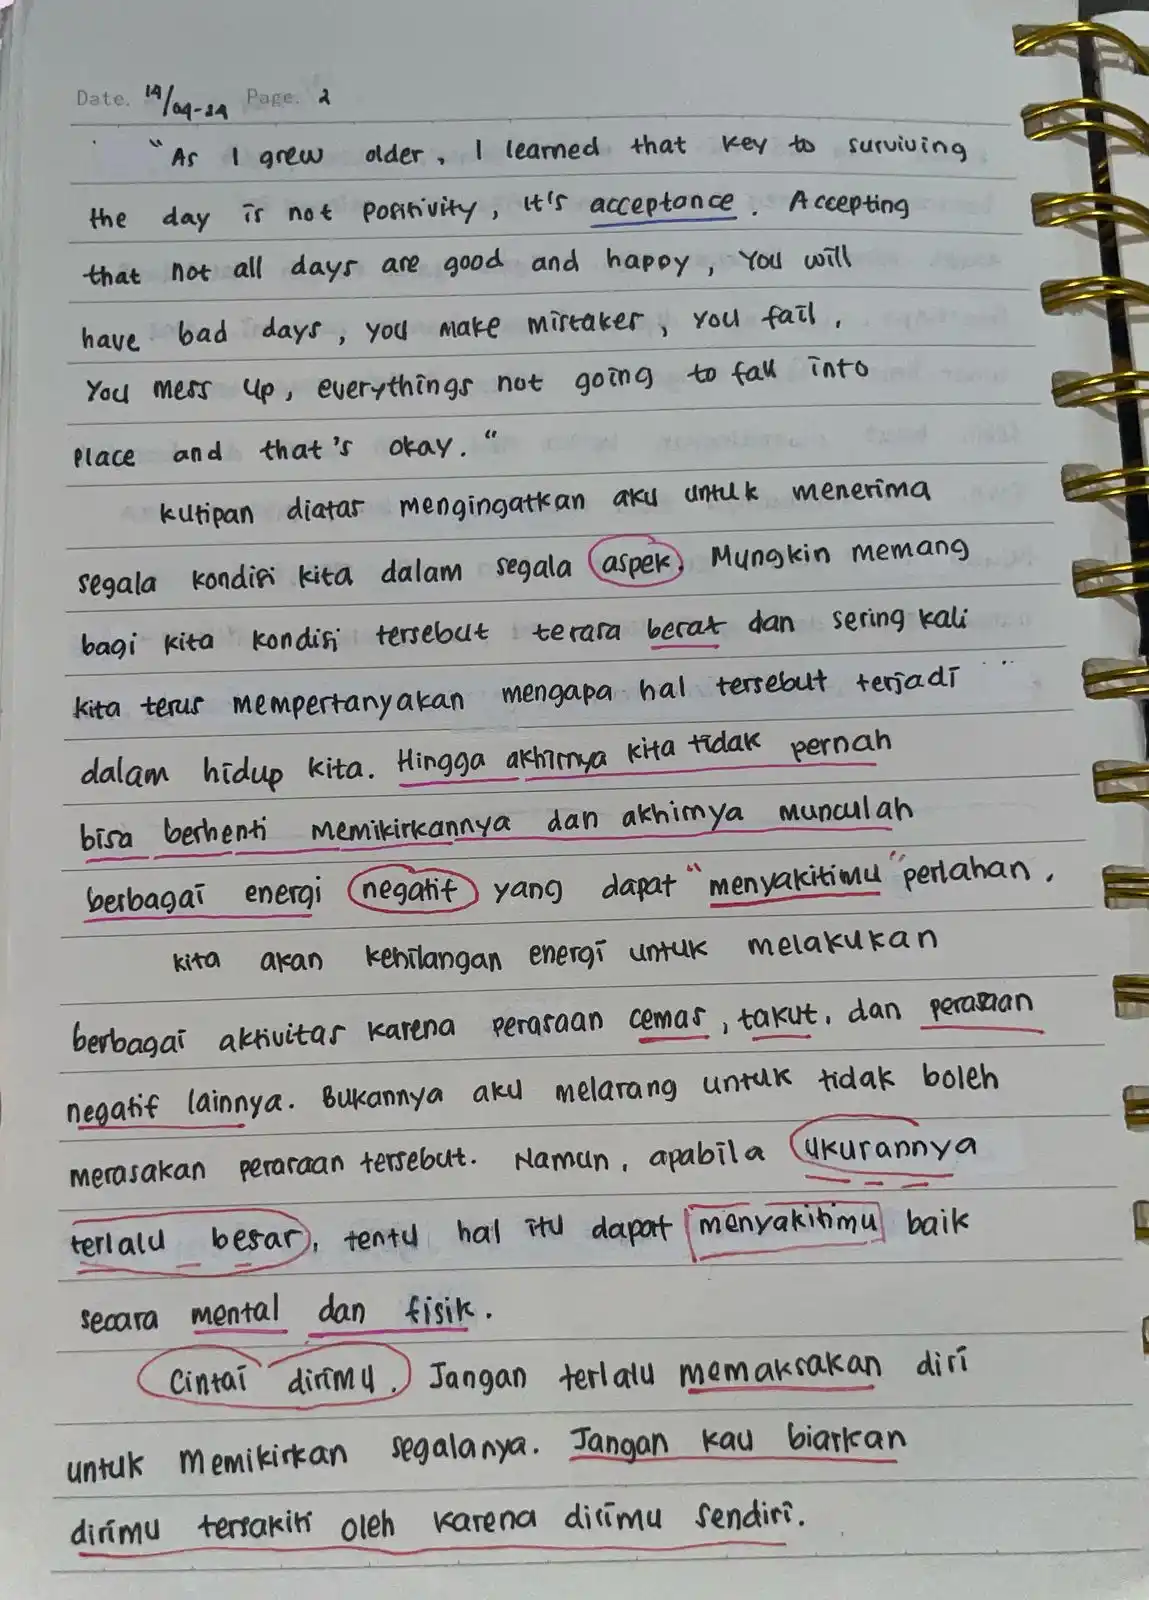 Date. 19/09-24 Page. 2
"As I grew older, I learned that key to surviving
the day is not positivity, it's acceptance. Accepting
that not all days are good and happy, you will
have bad days, you make mistakes, you fail.
You mess up, everythings not going to fall into
place and that's okay."
Kutipan diatas mengingatkan aku untuk menerima
segala kondisi kita dalam segala aspek. Mungkin memang
bagi kita kondisi tersebut terasa berat dan sering kali
kita terus mempertanyakan mengapa hal tersebut terjadi
dalam hidup kita. Hingga akhirnya kita tidak pernah
bisa berhenti memikirkannya dan akhirnya munculah
berbagai energi negatif yang dapat "menyakitimu" perlahan.
Kita akan kehilangan energi untuk melakukan
berbagai aktivitas karena perasaan cemas, takut, dan perasaan
negatif lainnya. Bukannya aku melarang untuk tidak boleh
merasakan perasaan tersebut. Namun, apabila ukurannya
terlalu besar, tentu hal itu dapat menyakitimu baik
secara mental dan fisik.
Cintai dirimu. Jangan terlalu memaksakan diri
untuk memikirkan segalanya. Jangan kau biarkan
dirimu tersakiti oleh karena dirimu sendiri.